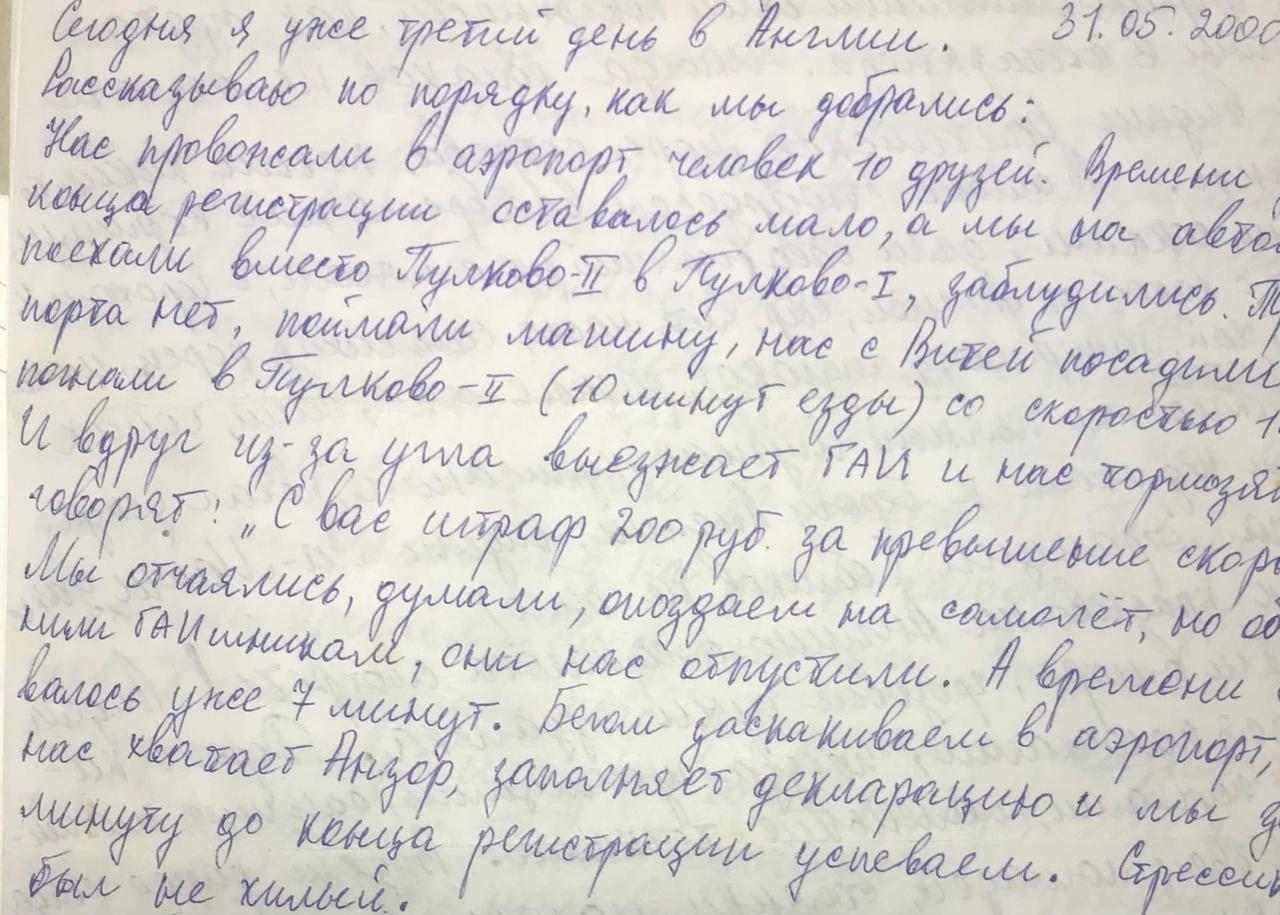 Сегодня я уже третий день в Англии. 31.05.2000
Рассказываю по порядку, как мы добрались:
Нас провожали в аэропорт человек 10 друзей. Времени
конца регистрации оставалось мало, а мы на авто
поехали вместо Пулково-II в Пулково-I, заблудились. Тр
порта нет, поймали машину, нас с Витей посадили
погнали в Пулково-II (10 минут езды) со скоростью 1
И вдруг из-за угла выезжает ГАИ и нас тормозят
говорят: „С вас штраф 200 руб. за превышение скоро
Мы отчаялись, думали, опоздаем на самолёт, но об
нили ГАИшникам, они нас отпустили. А времени
валось уже 7 минут. Бегом заскакиваем в аэропорт,
нас хватает Анзор, заполняет декларацию и мы
минуту до конца регистрации успеваем. Стресси
был не хилый.